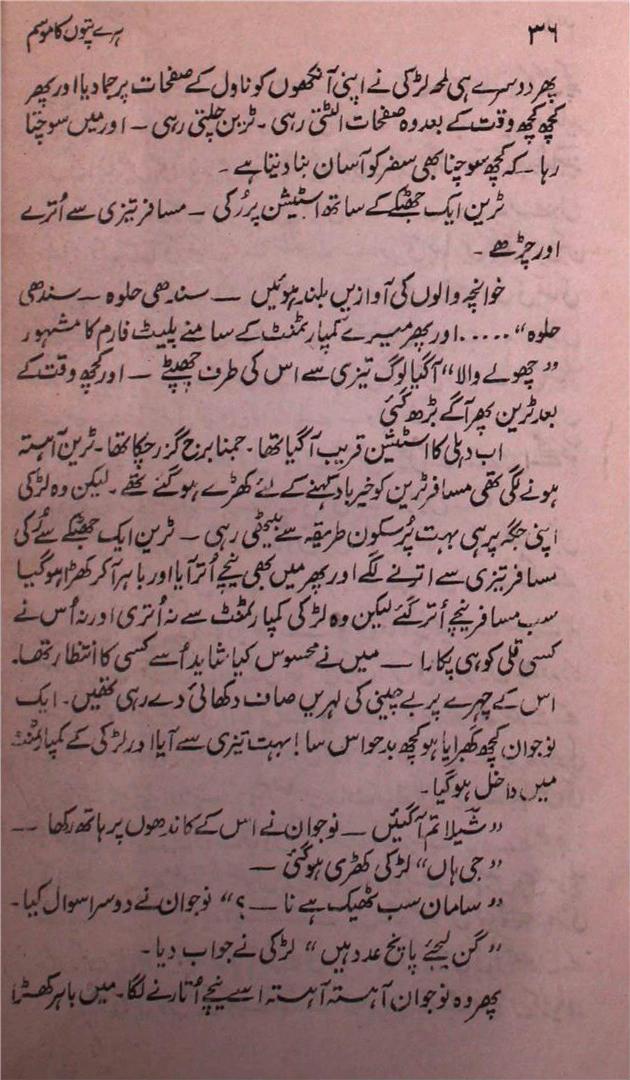 ۳۶
ہرے پتوں کا موسم
پھر دوسرے ہی لمحہ لڑکی نے اپنی آنکھوں کو ناول کے صفحات پر جما دیا اور پھر
کچھ کچھ وقت کے بعد وہ صفحات الٹتی رہی ۔ ٹرین چلتی رہی ۔ اور میں سوچتا
رہا ۔ کہ کچھ سوچنا بھی سفر کو آسان بنا دیتا ہے ۔
ٹرین ایک جھٹکے کے ساتھ اسٹیشن پر رُکی ۔ مسافر تیزی سے اُترے
اور چڑھے ۔
خوانچہ والوں کی آوازیں بلند ہوئیں — سندھی حلوہ — سندھی
حلوہ“ ..... اور پھر میرے کمپارٹمنٹ کے سامنے پلیٹ فارم کا مشہور
”چھولے والا“ آگیا لوگ تیزی سے اس کی طرف جھپٹے — اور کچھ وقت کے
بعد ٹرین پھر آگے بڑھ گئی
اب دہلی کا اسٹیشن قریب آگیا تھا ۔ جمنا برج گزر چکا تھا ۔ ٹرین آہستہ
ہونے لگی تھی مسافر ٹرین کو خیرباد کہنے کے لئے کھڑے ہو گئے تھے ۔ لیکن وہ لڑکی
اپنی جگہ پر ہی بہت پُرسکون طریقہ سے بیٹھی رہی — ٹرین ایک جھٹکے سے رُکی
مسافر تیزی سے اترنے لگے اور پھر میں بھی نیچے اُتر آیا اور باہر آکر کھڑا ہو گیا
سب مسافر نیچے اُتر گئے لیکن وہ لڑکی کمپارٹمنٹ سے نہ اُتری اور نہ اُس نے
کسی قلی کو ہی پکارا — میں نے محسوس کیا شاید اُسے کسی کا انتظار تھا۔
اس کے چہرے پر بے چینی کی لہریں صاف دکھائی دے رہی تھیں ۔ ایک
نوجوان کچھ گھبرایا ہو کچھ بدحواس سا ! بہت تیزی سے آیا اور لڑکی کے کمپارٹمنٹ
میں داخل ہو گیا ۔
”شیلا تم آگئیں — نوجوان نے اس کے کاندھوں پر ہاتھ رکھا —
”جی ہاں“ لڑکی کھڑی ہو گئی —
”سامان سب ٹھیک ہے نا — ؟“ نوجوان نے دوسرا سوال کیا ۔
”گن لیجئے پانچ عدد ہیں“ لڑکی نے جواب دیا ۔
پھر وہ نوجوان آہستہ آہستہ اسے نیچے اُتارنے لگا ۔ میں باہر کھڑا